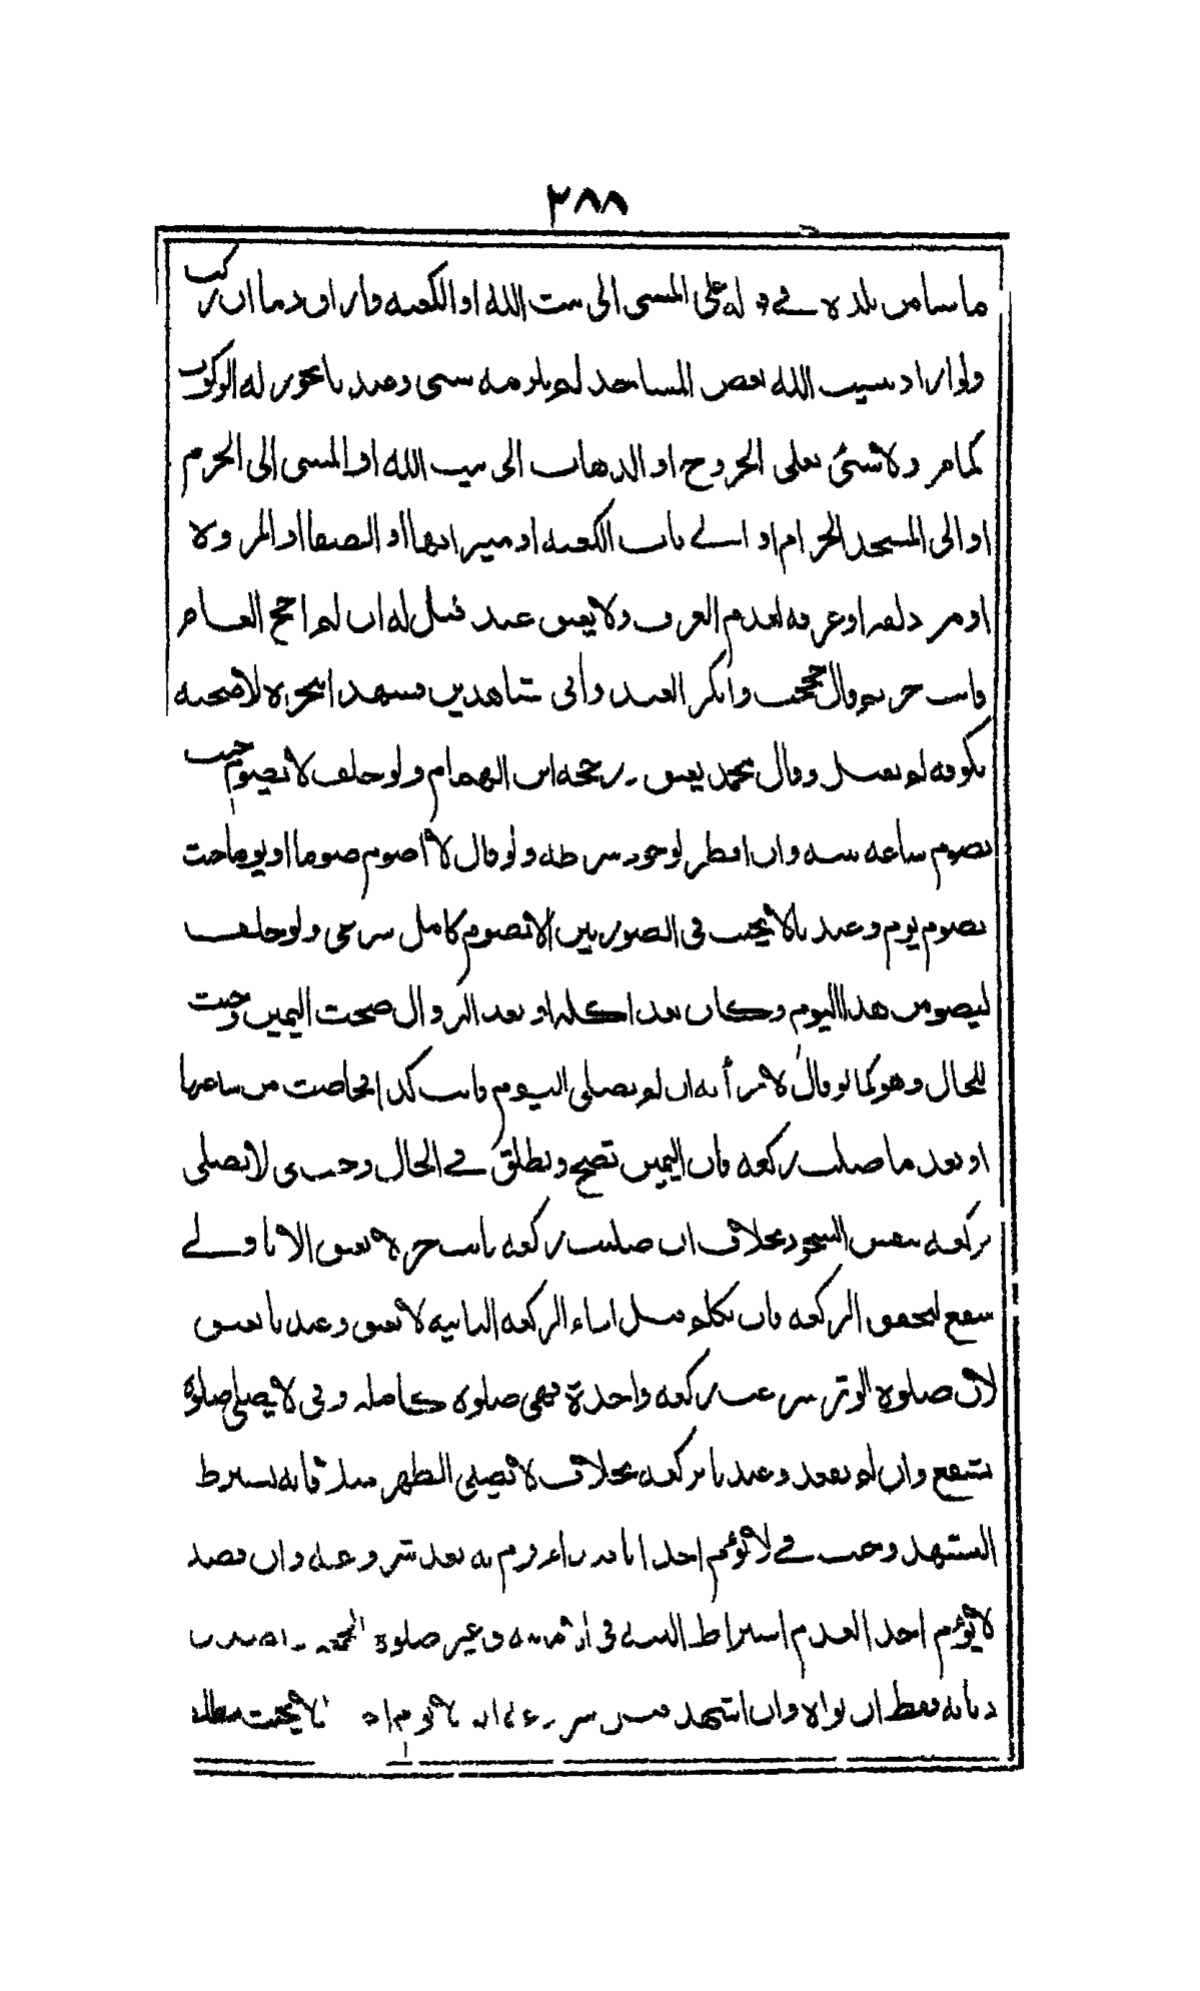 ٢٨٨
ماشيا من بلده في قوله علي المشي الى بيت الله او الكعبة واراق دما ان ركب
ولو اراد ببيت الله بعض المساجد لم يلزمه شيء وعندنا يجوز له الركوب
كما مر ولا شئ بعلي الخروج او الذهاب الى بيت الله او المشي الى الحرم
او الى المسجد الحرام او الى باب الكعبة او ميزابها او الصفا او المروة
او مزدلفة او عرفة لعدم العرف ولا يعتق عبد قيل له ان لم احج العام
فانت حر ثم قال حججت وانكر العبد واتى شاهدين فشهدا بنحره لاضحيته
بكوفة لم تقبل وقال محمد يعتق ورجحه ابن الهمام ولو حلف لا يصوم حنث
بصوم ساعة بنية وان افطر لوجود شرطه ولو قال لا اصوم صوما او يوما حنث
بصوم يوم وعندنا لا يحنث في الصورتين الا بصوم كامل شرعي ولو حلف
ليصومن هذا اليوم وكان بعد اكله او بعد الزوال صحت اليمين وحنث
للحال وهو كما لو قال لامرأته ان لم تصلي اليوم فانت كذا فحاضت من ساعتها
او بعد ما صلت ركعة فان اليمين تصح وتطلق في الحال وحنث في لا يصلي
بركعة بنفس السجود بخلاف ان صليت ركعة فانت حر لا يعتق الا باولى
شفع لتحقق الركعة فان تكلم قبل اتيانه الركعة الثانية لا يعتق وعندنا يعتق
لان صلوة الوتر شرعت ركعة واحدة فهي صلوة كاملة وفي لا يصلي صلوة
بشفع وان لم يقعد وعندنا بركعة بخلاف لا يصلي الظهر مثلا فانه يشترط
التشهد وحنث في لا يؤم احدا باقتداء قوم به بعد شروعه وان قصد
لا يؤم احدا لعدم اشتراط النية في امامته في غير صلوة الجمعة
ديانة فقط ان نواه وان اشهد قبل شروعه انه لا يؤم لا يحنث مطلقا